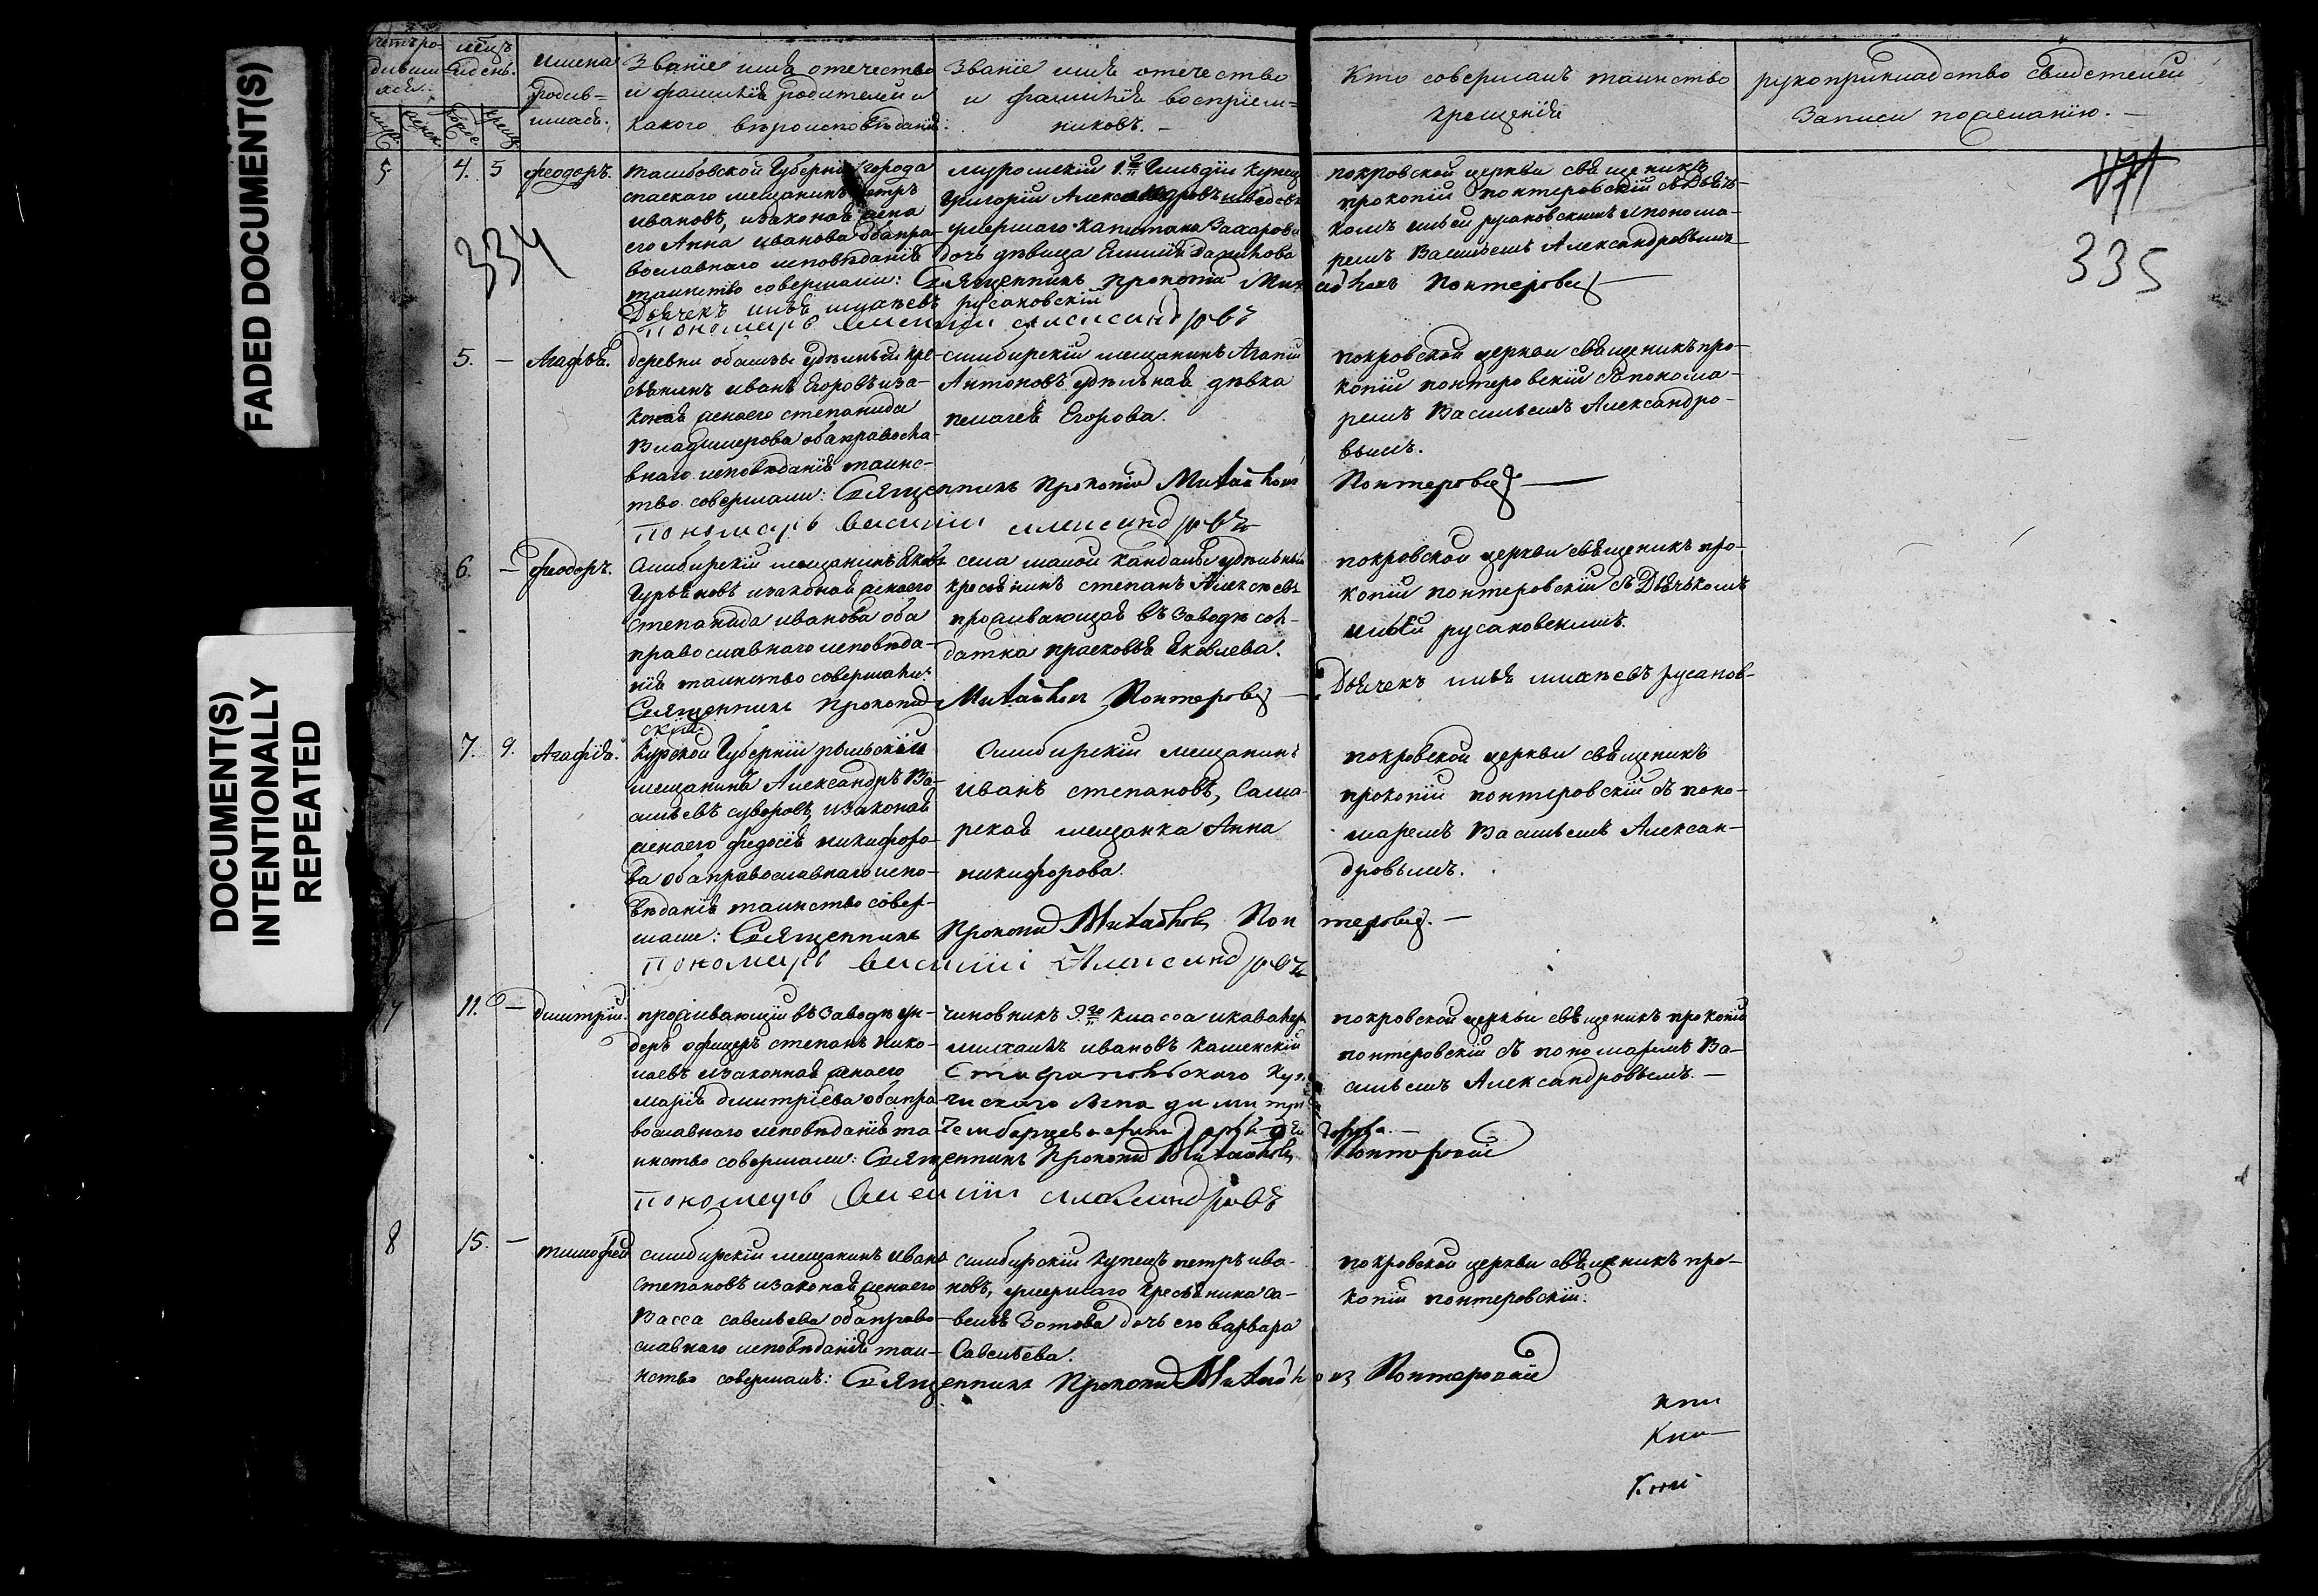 FADED DOCUMENT(S)
DOCUMENT(S)
INTENTIONALLY
REPEATED
имена
родив=
шихся.
Званіе имя отечество
и фамилія родителей и
какого вѣроисповѣданія.
Званіе имя отечество
и фамилія воспріем=
никовъ. –
Кто совершалъ таинство
крещенія
рукоприкладство свидетелей
Записи по желанію. –
334
335
5
4. 5
феодоръ.
тамбовской Губерніи города
спаскаго мещанинъ петръ
ивановъ, изаконая жена
его Анна иванова оба пра-
вославнаго исповѣданія
таинство совершали: Священникъ Прокопій
Дьячекъ илья русановскій
Пономарь
муромскій 1й Гильдіи купец
Григорій Александровъ
умершаго капитана Захарова
дочь дѣвица
покровской церкви священикъ
прокопій понтеровскій съ Дьяч-
комъ ильей русановскимъ и понома-
ремъ Васильемъ Александровымъ
Понтеровскій
5. –
Агафья.
деревни удѣльный кре-
стьянинъ иванъ Егоровъ иза-
коная жена его степанида
Владимерова оба правосла-
внаго исповѣданія таинс-
тво совершали: Священникъ Прокопій Михайловъ Понтеровскій
Пономарь василій александровъ
симбирскій мещанинъ Агапій
Антоновъ удѣльная дѣвка
пелагея Егорова.
покровской церкви священикъ про-
копій понтеровскій съ понома-
ремъ Васильемъ Александро-
вымъ.
6. –
феодоръ.
Симбирскій мещанинъ Яковъ
Гурьяновъ изаконая жена его
степанида иванова оба
православнаго исповѣда-
нія таинство совершали:
Священникъ Прокопій Михайловъ Понтеровскій –
Дьячекъ илья русанов-
скій
села малой кандалы удѣльный
кресьянинъ степанъ Алексѣевъ
проживающая въ Заводѣ сол-
датка прасковья Яковлева.
покровской церкви священикъ про-
копій понтеровскій съ Дьячькомъ
ильей русановскимъ.
7. 9.
Агафія.
Курской Губерніи рыльскій
мещанинъ Александръ Ва-
сильевъ суворовъ, изаконая
жена его федосія никифоро-
ва оба православнаго испо-
вѣданія таинство совер-
шали: Священникъ Прокопій Михайловъ Понтеровскій. –
Пономарь василій Александровъ
Симбирскій мещанинъ
иванъ степановъ, Сама-
рская мещанка Анна
никифорова.
покровской церкви священикъ
прокопій понтеровскій съ поно-
маремъ Васильемъ Алексан-
дровымъ.
7
11. –
дмитрій.
проживающій въ Заводѣ ун-
деръ офицеръ степанъ нико-
лаевъ изаконная жена его
марія дмитріева оба пра-
вославнаго исповѣданія та-
инство совершали: Священникъ Прокопій Михайловъ Понтеровскій
Пономарь василій александровъ
чиновникъ 9го класса и кавалер
михаилъ ивановъ каменскій
покровской церкви священикъ прокопій
понтеровскій съ пономаремъ Ва-
сильемъ Александровымъ. –
8
15. –
тимофей
симбирскій мещанинъ иванъ
степановъ изаконая жена его
Васса савельева оба право-
славнаго исповѣданія таи-
нство совершалъ: Священникъ Прокопій Михайловъ Понтеровскій
симбирскій купецъ петръ ива-
новъ, умершаго кресьянина са-
велья Зотова дочь его варвара
Савельева.
покровской церкви священикъ про-
копій понтеровскій.